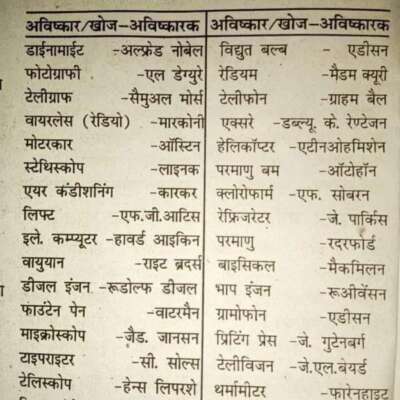 अविष्कार/खोज–अविष्कारक
डाईनामाईट -अल्फ्रेड नोबेल
फोटोग्राफी -एल डेग्युरे
टेलीग्राफ -सैमुअल मोर्स
वायरलेस (रेडियो) -मारकोनी
मोटरकार -ऑस्टिन
स्टेथिस्कोप -लाइनक
एयर कंडीशनिंग -कारकर
लिफ्ट -एफ.जी.आटिस
इले. कम्प्यूटर -हावर्ड आइकिन
वायुयान -राइट ब्रदर्स
डीजल इंजन -रूडोल्फ डीजल
फाउंटेन पेन -वाटरमैन
माइक्रोस्कोप -जैड. जानसन
टाइपराइटर -सी. सोल्स
टेलिस्कोप -हेन्स लिपरशे
अविष्कार/खोज–अविष्कारक
विद्युत बल्ब - एडीसन
रेडियम -मैडम क्यूरी
टेलीफोन -ग्राहम बैल
एक्सरे -डब्ल्यू. के. रेण्टेजन
हेलिकॉप्टर -एटीनओहमिशेन
परमाणु बम -ऑटोहॉन
क्लोरोफार्म -एफ. सोबरन
रेफ्रिजरेटर -जे. पार्किस
परमाणु -रदरफोर्ड
बाइसिकल -मैकमिलन
भाप इंजन -रूओवेंसन
ग्रामोफोन -एडीसन
प्रिटिंग प्रेस -जे. गुटेनबर्ग
टेलीविजन -जे.एल.बेयर्ड
थर्मामीटर -फारेनहाइट